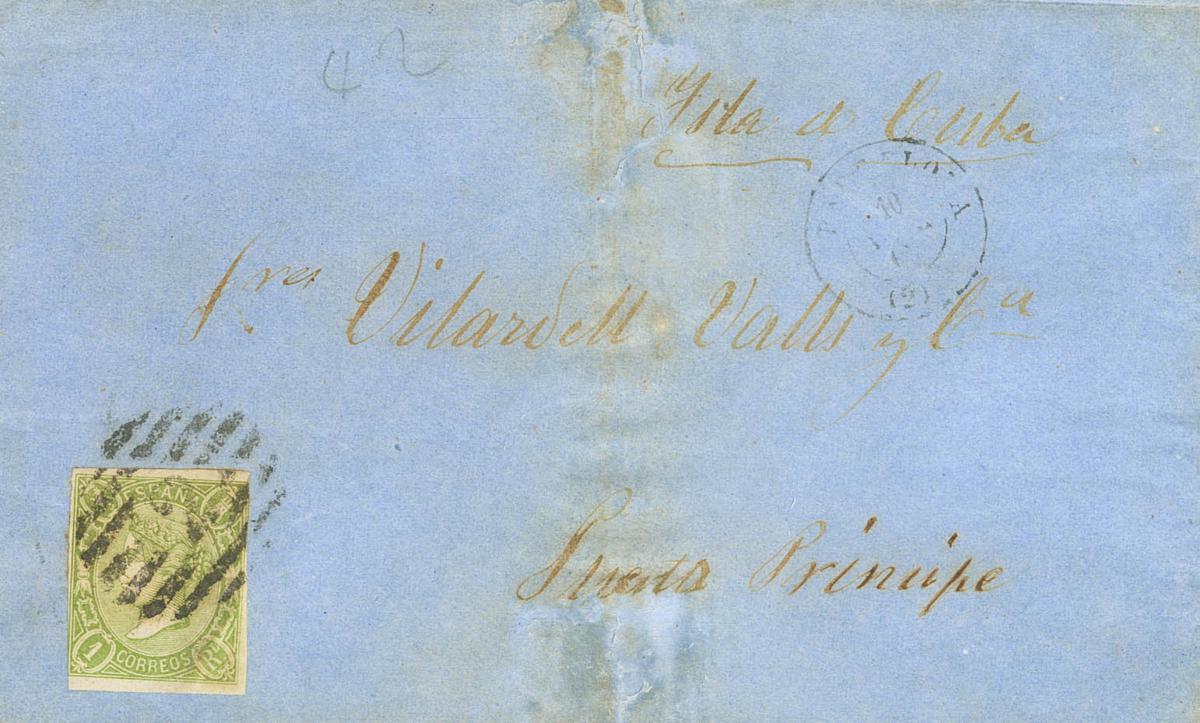 42
Isla de Cuba
BARCELONA
10
(2)
Sres Vilardell Valls y Ca
Puerto Principe
ESPAÑA
CORREOS
1 Rl